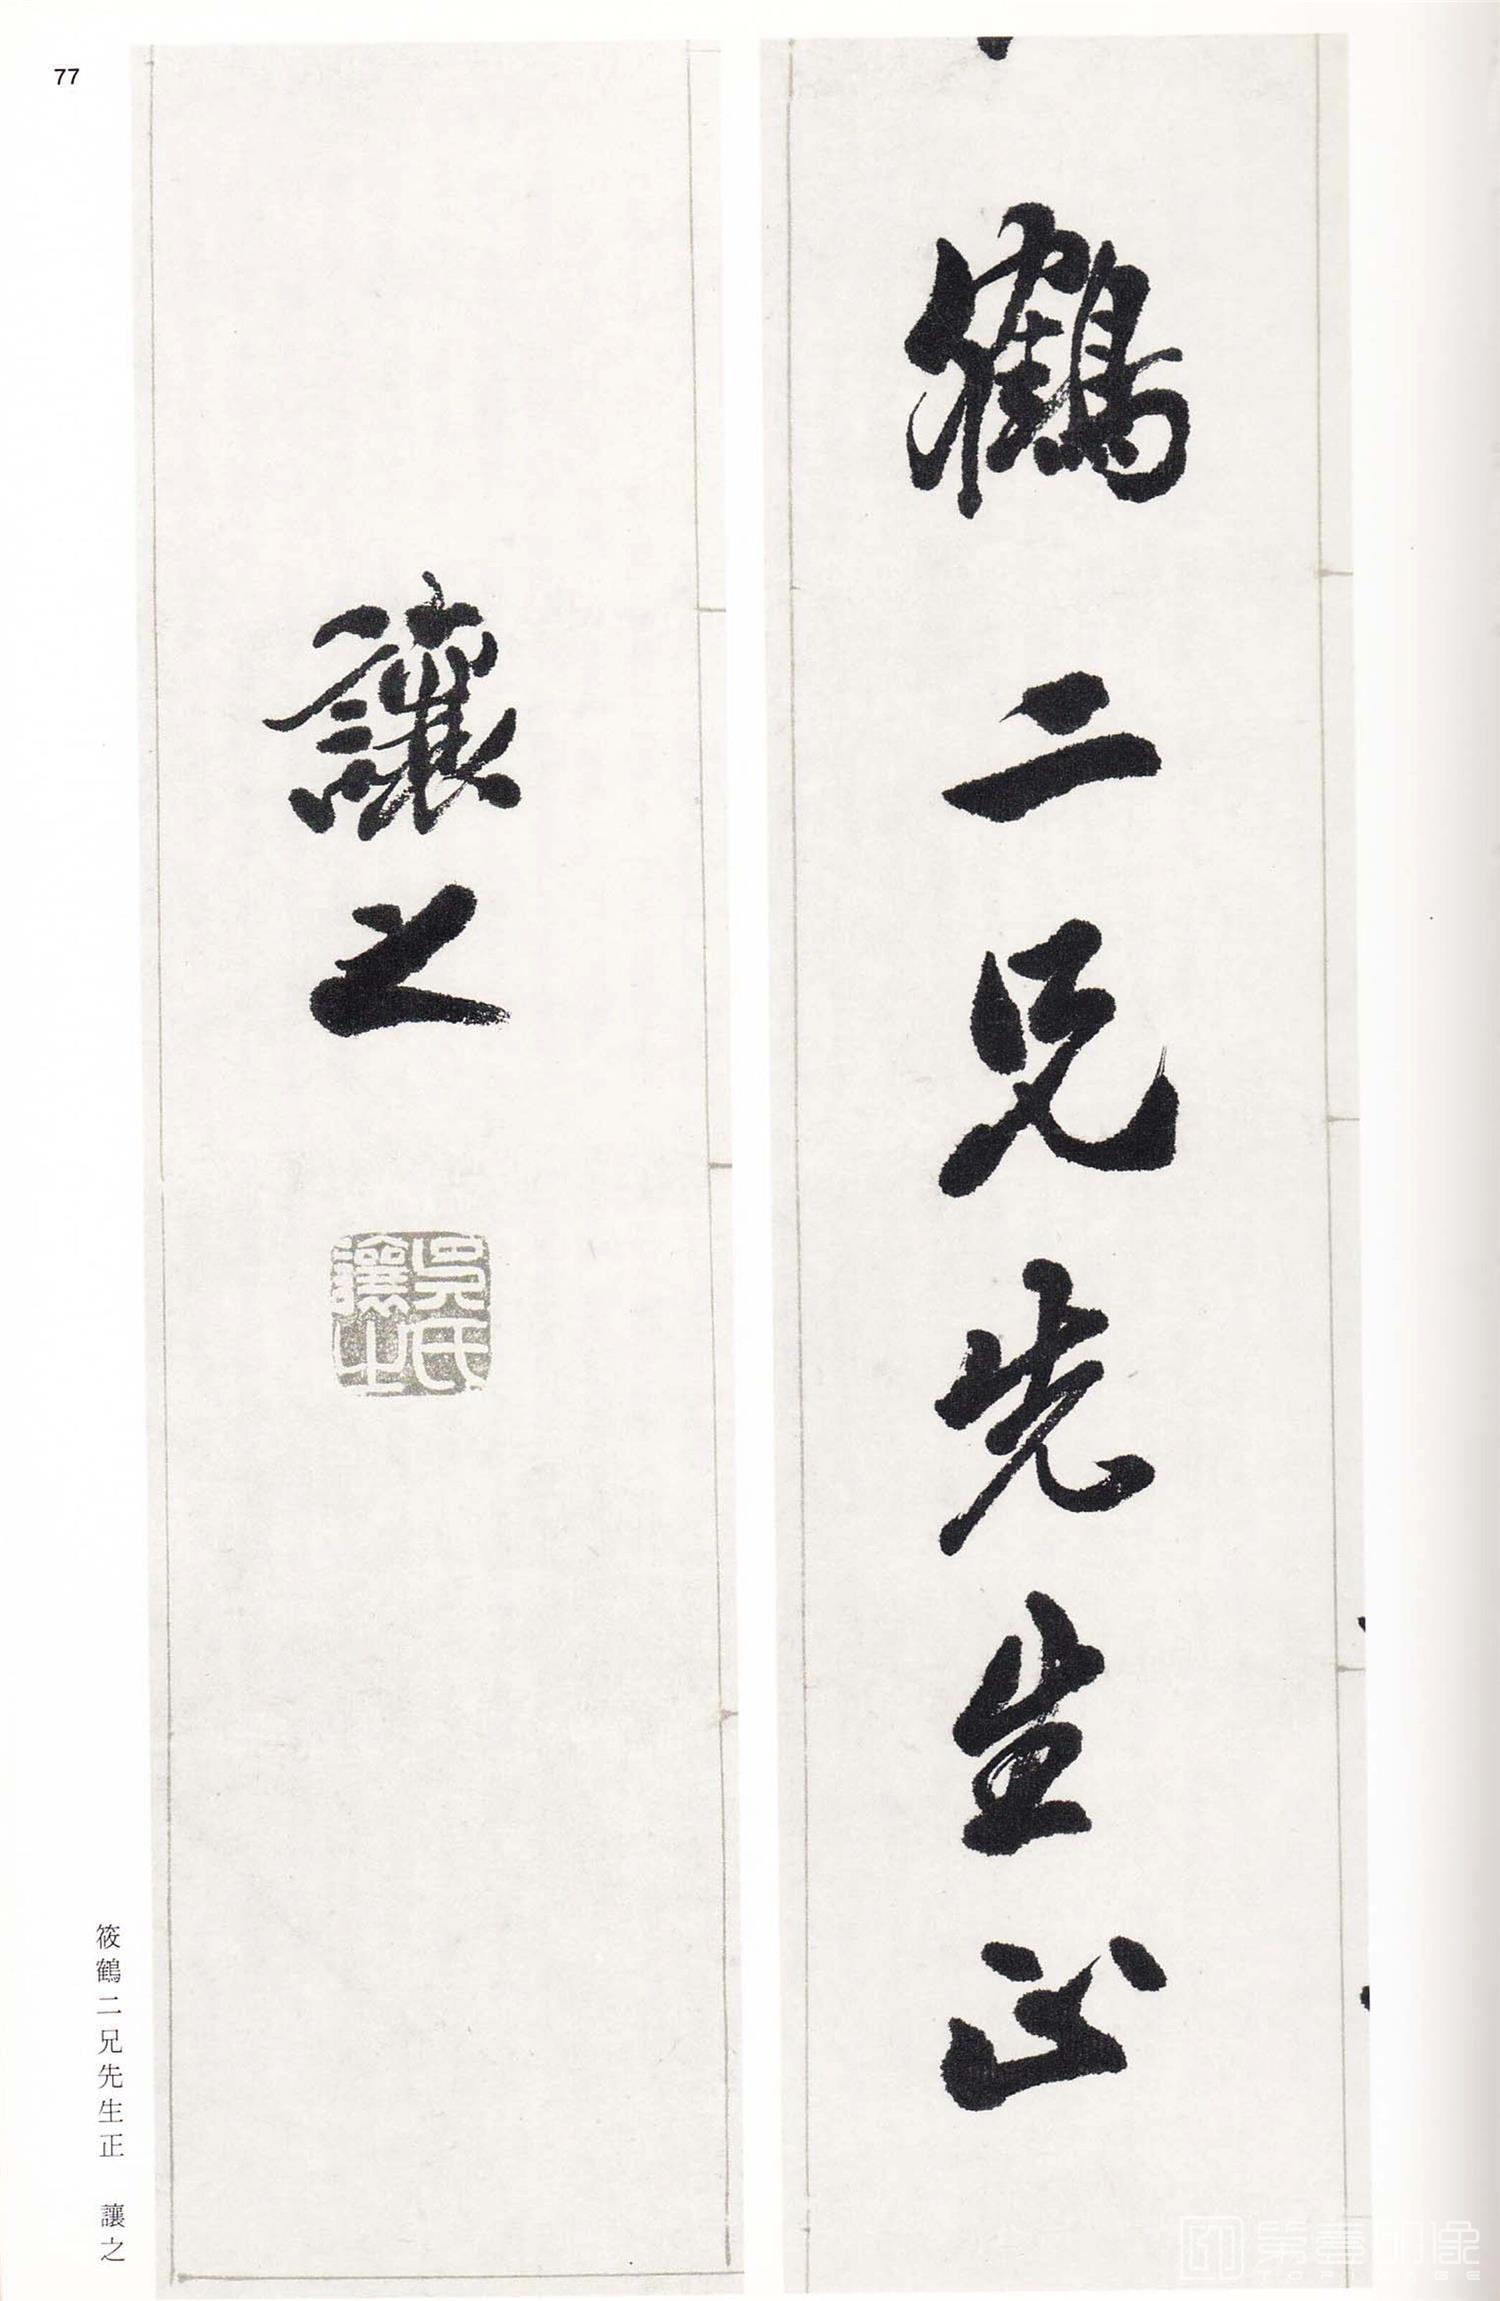 鶴二兄先生正
讓之
吳氏
讓之
筱鶴二兄先生正　讓之
77
第壹印像
TOPIMAGE